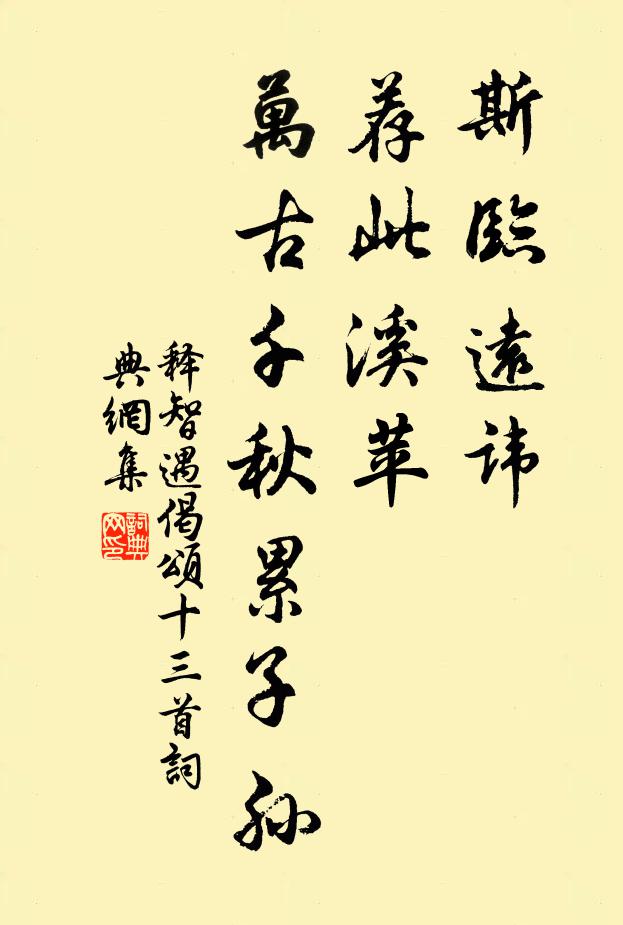 斯臨遠讳
荐此溪苹
萬古千秋累子孙
释智遇偈頌十三首詞
典網集
詞典網印